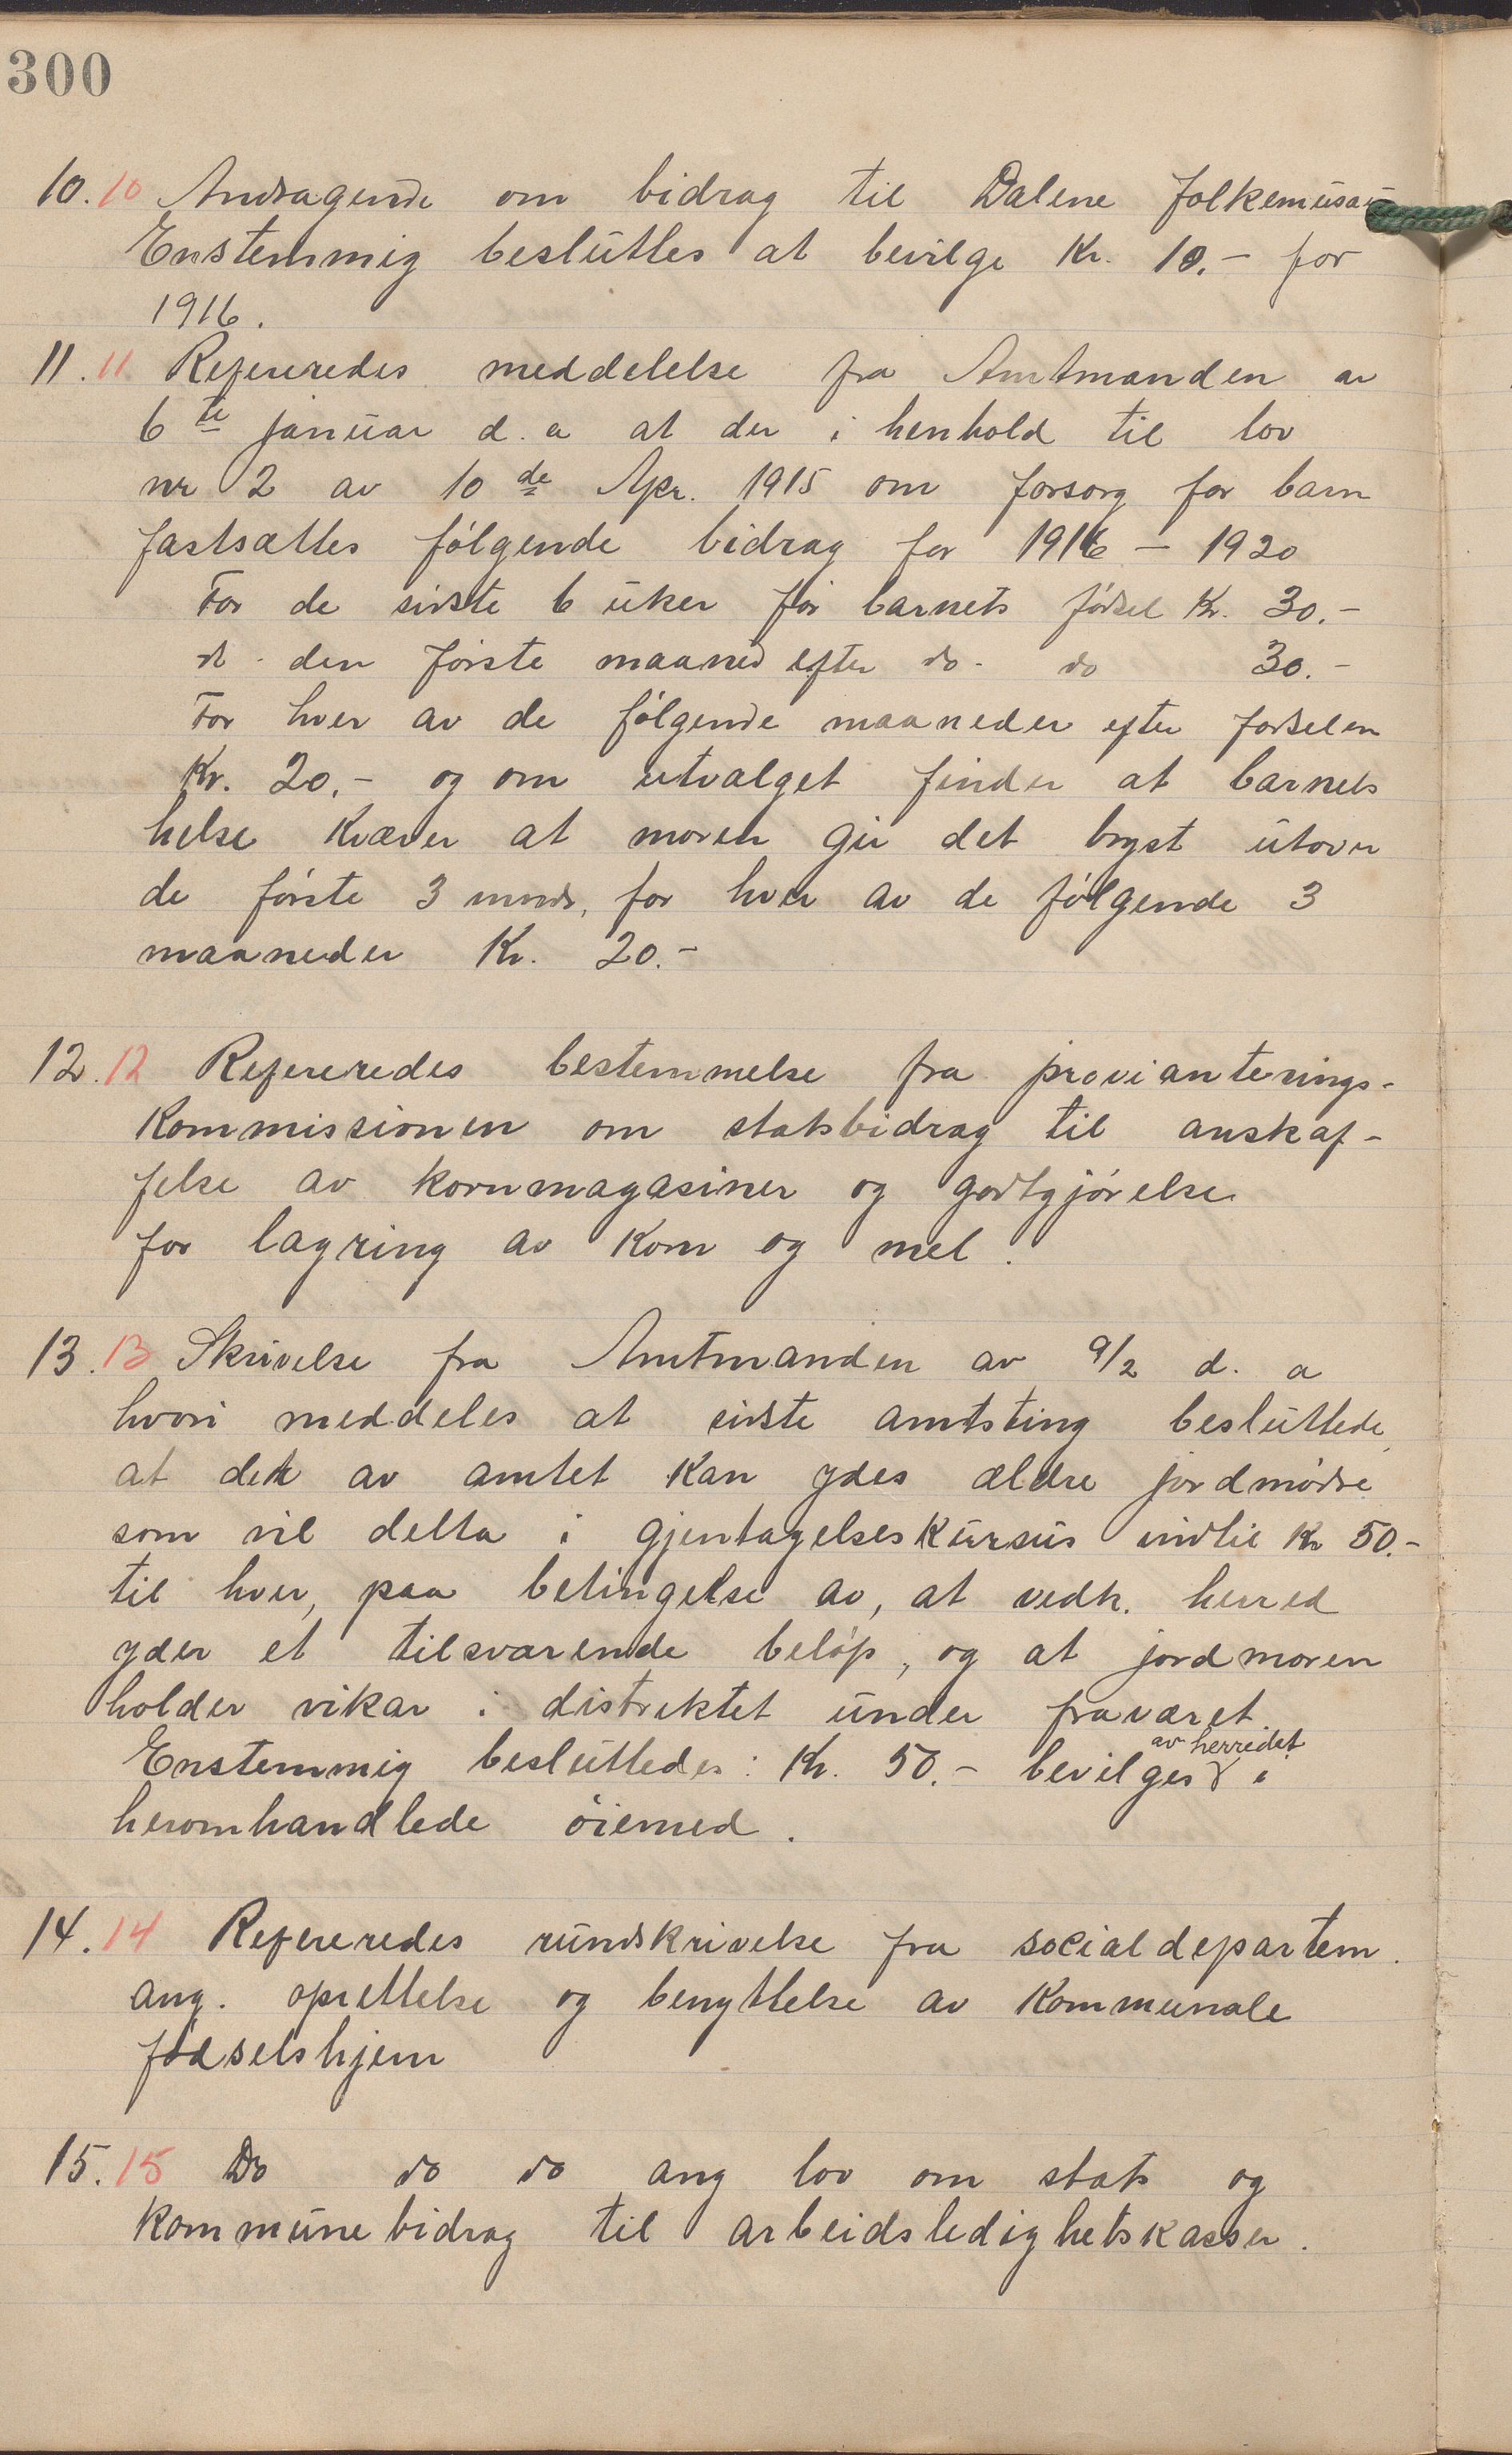 300
10. 10 Andragende om bidrag til Dalene folkemusæu
Enstemmig besluttes at bevilge Kr. 10.- for
1916.
11. 11 Refereredes meddelelse fra Amtmanden av
6te januar d. a at der i henhold til lov
nr 2 av 10de Apr. 1915 om forsorg for barn
fastsættes følgende bidrag for 1916 - 1920
For de sidste 6 uker før barnets fødsel Kr. 30.-
do - den første maaned efter do - do 30.-
For hver av de følgende maaneder efter fødselen
Kr. 20.- og om utvalget finder at barnets
helse kræver at moren gir det bryst utover
de første 3 mnds, for hver av de følgende 3
maaneder Kr. 20.-
12. 12 Refereredes bestemmelse fra provianterings-
kommissionen om statsbidrag til anskaf-
felse av kornmagasiner og godtgjørelse
for lagring av korn og mel.
13. 13 Skrivelse fra Amtmanden av 9/2 d. a
hvori meddeles at sidste amtsting besluttede
at der av amtet kan ydes ældre jordmødre
som vil delta i gjentagelseskursus indtil Kr 50.-
til hver, paa betingelse av, at vedk. herred
yder et tilsvarende beløp, og at jordmoren
holder vikar i distriktet under fraværet.
Enstemmig besluttedes: Kr. 50.- bevilges av herredet i
heromhandlede øiemed.
14. 14 Refereredes rundskrivelse fra socialdepartem.
ang. oprettelse og benyttelse av kommunale
fødselshjem
15. 15 Do do do ang lov om stats og
kommunebidrag til arbeidsledighetskasser.